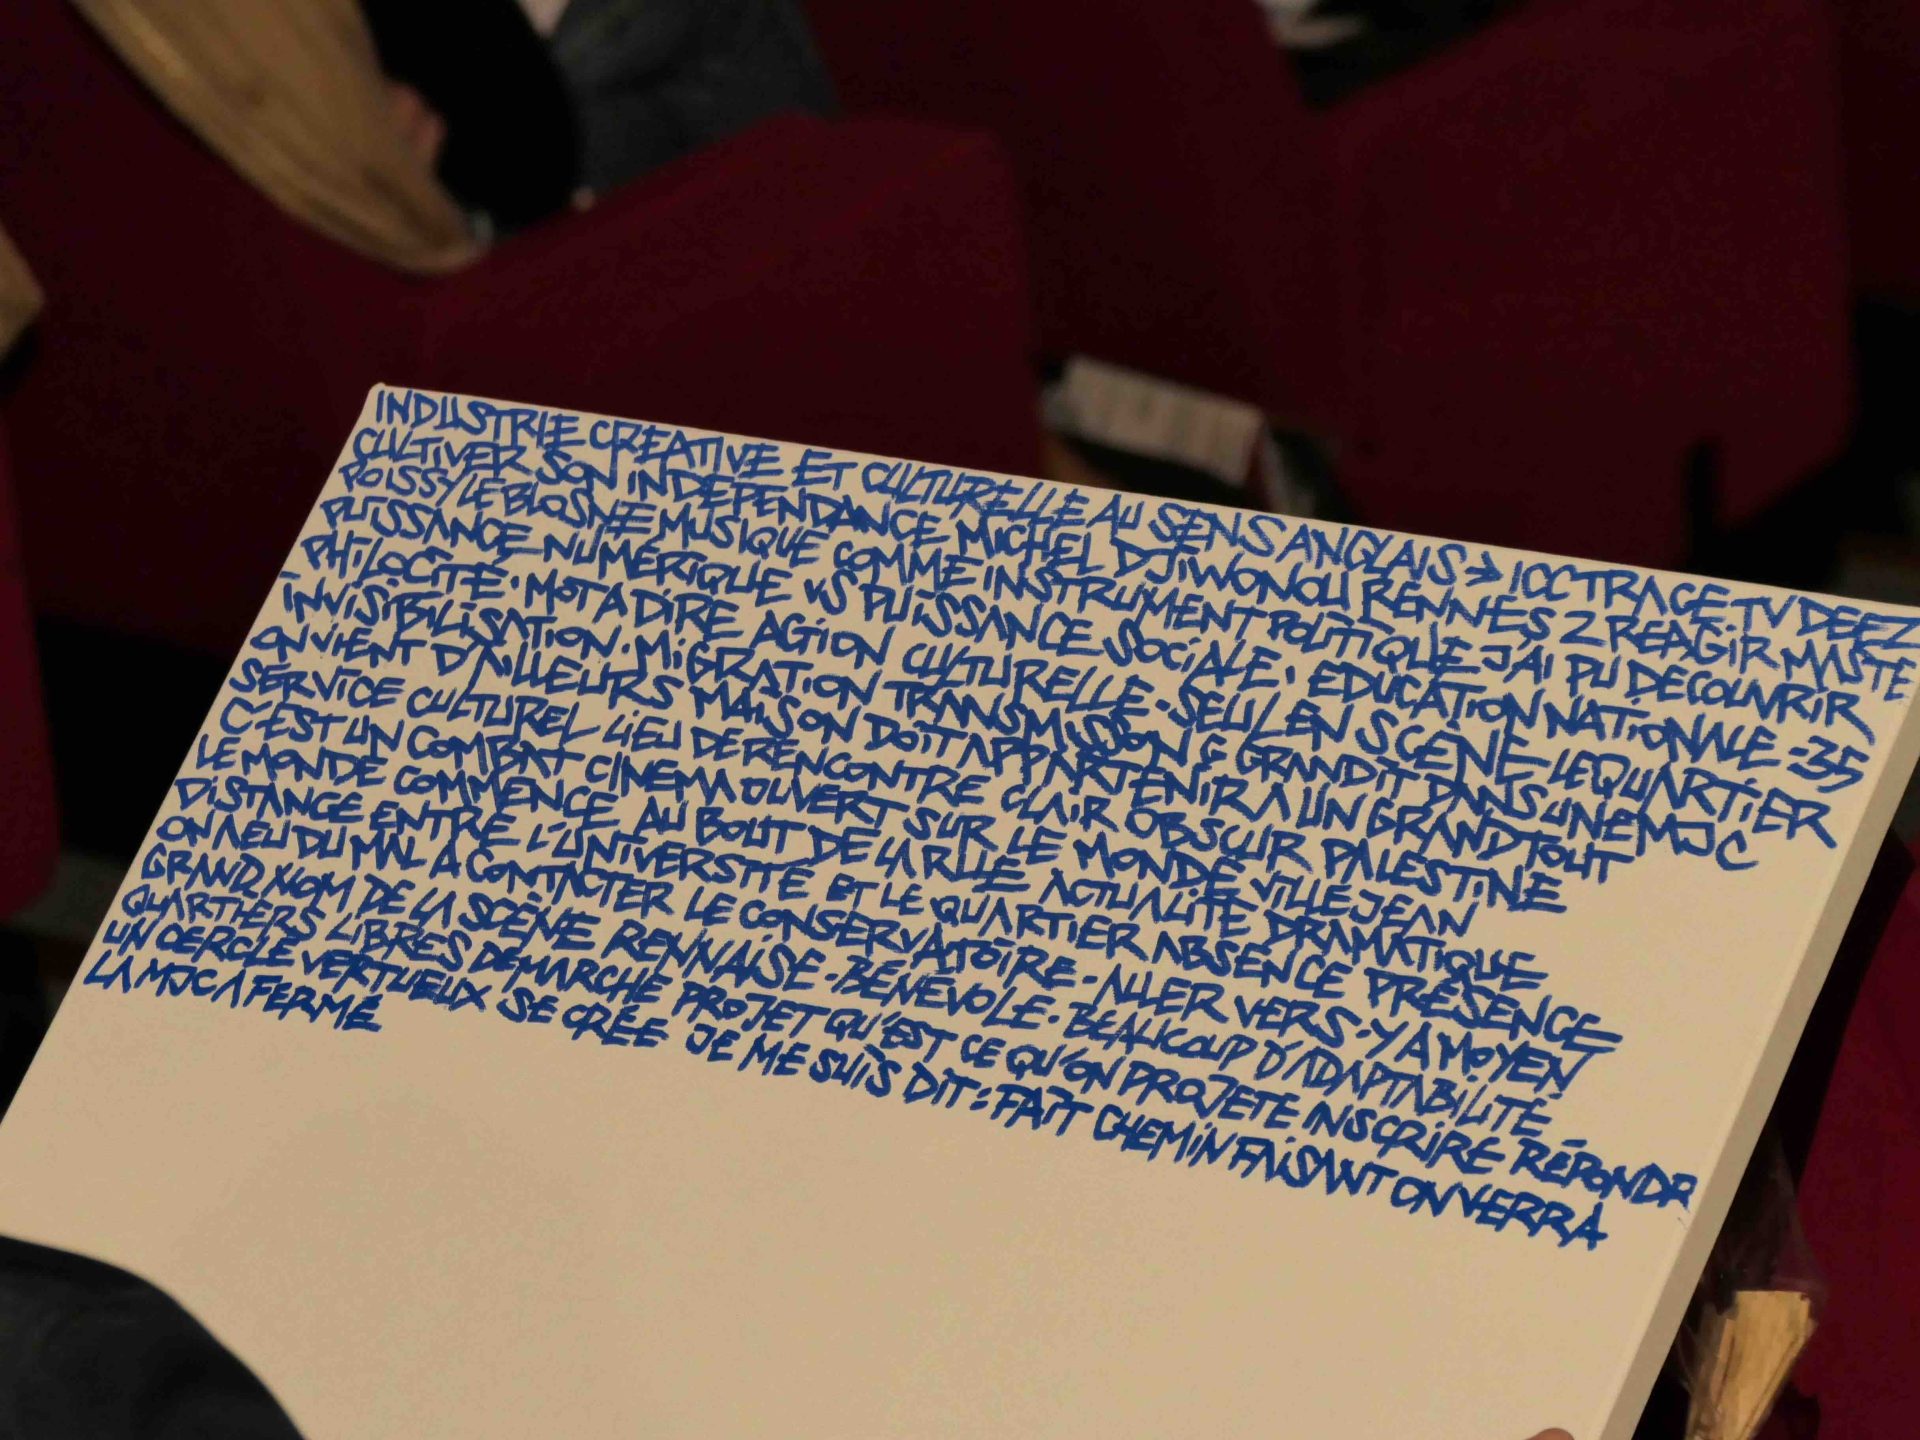 INDUSTRIE CRÉATIVE ET CULTURELLE AU SENS ANGLAIS → ICC TRACE TV DEEZ
CULTIVER SON INDÉPENDANCE MICHEL DJIWONOU RENNES 2 RÉAGIR MASTE
POISSY LE BLOSNE MUSIQUE COMME INSTRUMENT POLITIQUE J'AI PU DÉCOUVRIR
PUISSANCE NUMÉRIQUE VS PUISSANCE SOCIALE. EDUCATION NATIONALE - 35
PHILOCITÉ. MOT A DIRE AGION CULTURELLE - SEUL EN SCÈNE LE QUARTIER
INVISIBILISATION. MIGRATION TRANSMISSON & GRANDIT DANS UNE MJC
ON VIENT D'AILLEURS MAISON DOIT APPARTENIR A UN GRAND TOUT
SERVICE CULTUREL LIEU DE RENCONTRE CLAIR OBSCUR PALESTINE
C'EST UN COMBAT CINEMA OUVERT SUR LE MONDE VILLEJEAN
LE MONDE COMMENCE AU BOUT DE LA RUE ACTUALITÉ DRAMATIQUE
DISTANCE ENTRE L'UNIVERSITÉ ET LE QUARTIER ABSENCE PRÉSENCE
ON A EU DU MAL A CONTACTER LE CONSERVATOIRE - ALLER VERS - Y A MOYEN
GRAND NOM DE LA SCÈNE RENNAISE - BÉNÉVOLE - BEAUCOUP D'ADAPTABILITÉ
QUARTIERS LIBRES DÉMARCHE PROJET QU'EST CE QU'ON PROJETE INSCRIRE RÉPONDR
UN CERCLE VERTUEUX SE CRÉE JE ME SUIS DIT : FAIT CHEMIN FAISANT ON VERRA
LA MJC A FERMÉ